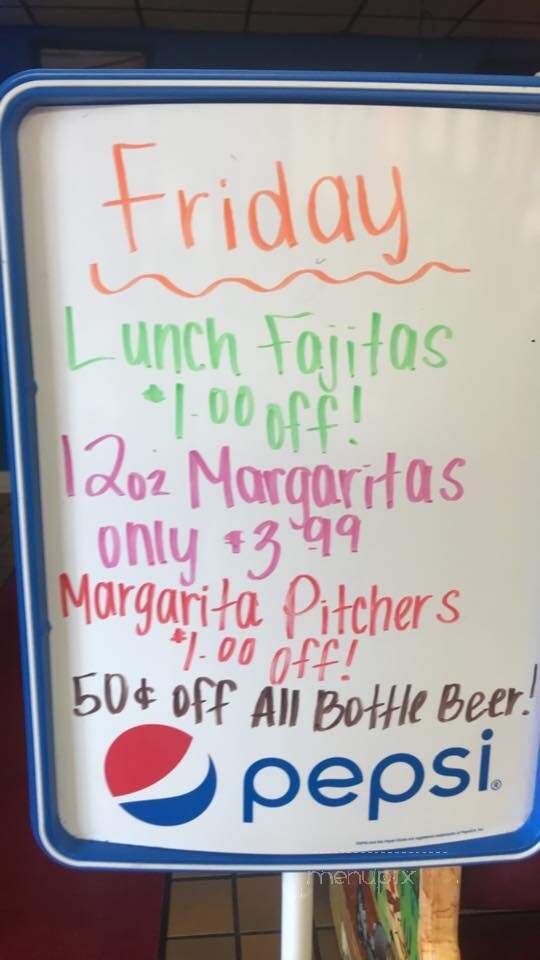 Friday
Lunch Fajitas
$1.00 off!
12oz Margaritas
only $3.99
Margarita Pitchers
$1.00 off!
50¢ off All Bottle Beer!
pepsi®
menupix